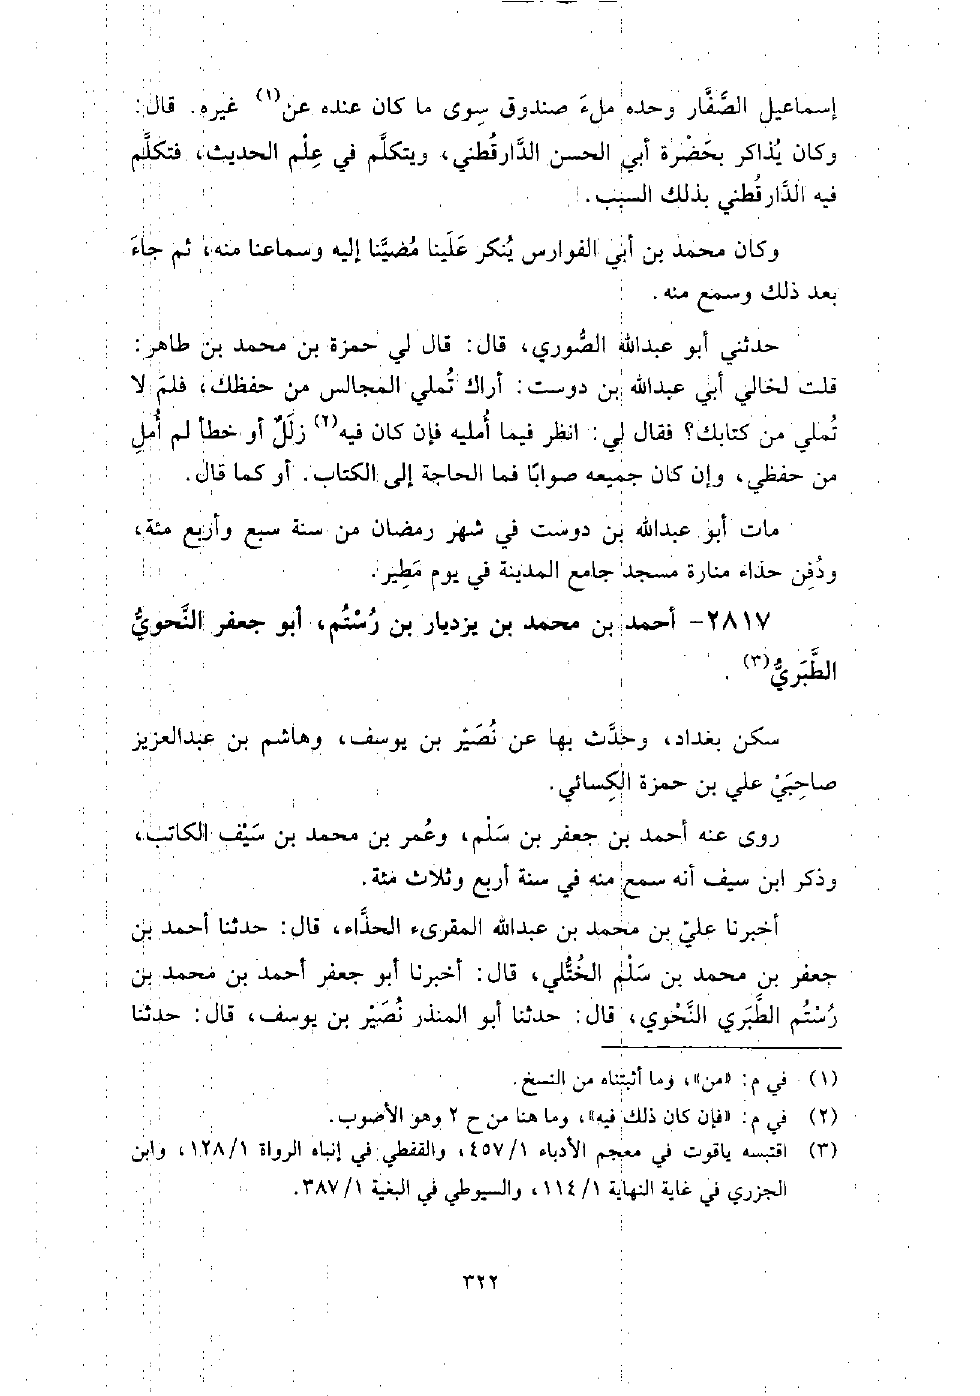 إسماعيل الصَّفَّار وحده ملءَ صندوق سِوى ما كان عنده عن(١) غيره. قال:
وكان يُذاكر بحَضْرة أبي الحسن الدَّارقُطني، ويتكلَّم في عِلْم الحديث، فتكلَّم
فيه الدَّارقُطني بذلك السبب.
وكان محمد بن أبي الفوارس يُنكر عَلَينا مُضيَّنا إليه وسماعنا منه، ثم جاءَ
بعد ذلك وسمع منه.
حدثني أبو عبدالله الصُّوري، قال: قال لي حمزة بن محمد بن طاهر:
قلت لخالي أبي عبدالله بن دوست: أراك تُملي المجالس من حفظك، فلمَ لا
تُملي من كتابك؟ فقال لي: انظر فيما أُمليه فإن كان فيه(٢) زلَلٌ أو خطأ لم أُملِ
من حفظي، وإن كان جميعه صوابًا فما الحاجة إلى الكتاب. أو كما قال.
مات أبو عبدالله بن دوست في شهر رمضان من سنة سبع وأربع مئة،
ودُفِن حذاء منارة مسجد جامع المدينة في يوم مَطِير.
٢٨١٧- أحمد بن محمد بن يزديار بن رُسْتُم، أبو جعفر النَّحويُّ
الطَّبَريُّ(٣).
سكن بغداد، وحدَّث بها عن نُصَيْر بن يوسف، وهاشم بن عبدالعزيز
صاحِبَيْ علي بن حمزة الكِسائي.
روى عنه أحمد بن جعفر بن سَلْم، وعُمر بن محمد بن سَيْف الكاتب،
وذكر ابن سيف أنه سمع منه في سنة أربع وثلاث مئة.
أخبرنا عليّ بن محمد بن عبدالله المقرىء الحذَّاء، قال: حدثنا أحمد بن
جعفر بن محمد بن سَلْم الخُتُّلي، قال: أخبرنا أبو جعفر أحمد بن محمد بن
رُسْتُم الطَّبَري النَّحْوي، قال: حدثنا أبو المنذر نُصَيْر بن يوسف، قال: حدثنا
(١) في م: «من»، وما أثبتناه من النسخ.
(٢) في م: «فإن كان ذلك فيه»، وما هنا من ح ٢ وهو الأصوب.
(٣) اقتبسه ياقوت في معجم الأدباء ١/ ٤٥٧، والقفطي في إنباه الرواة ١/ ١٢٨، وابن
الجزري في غاية النهاية ١/ ١١٤، والسيوطي في البغية ١/ ٣٨٧.
٣٢٢